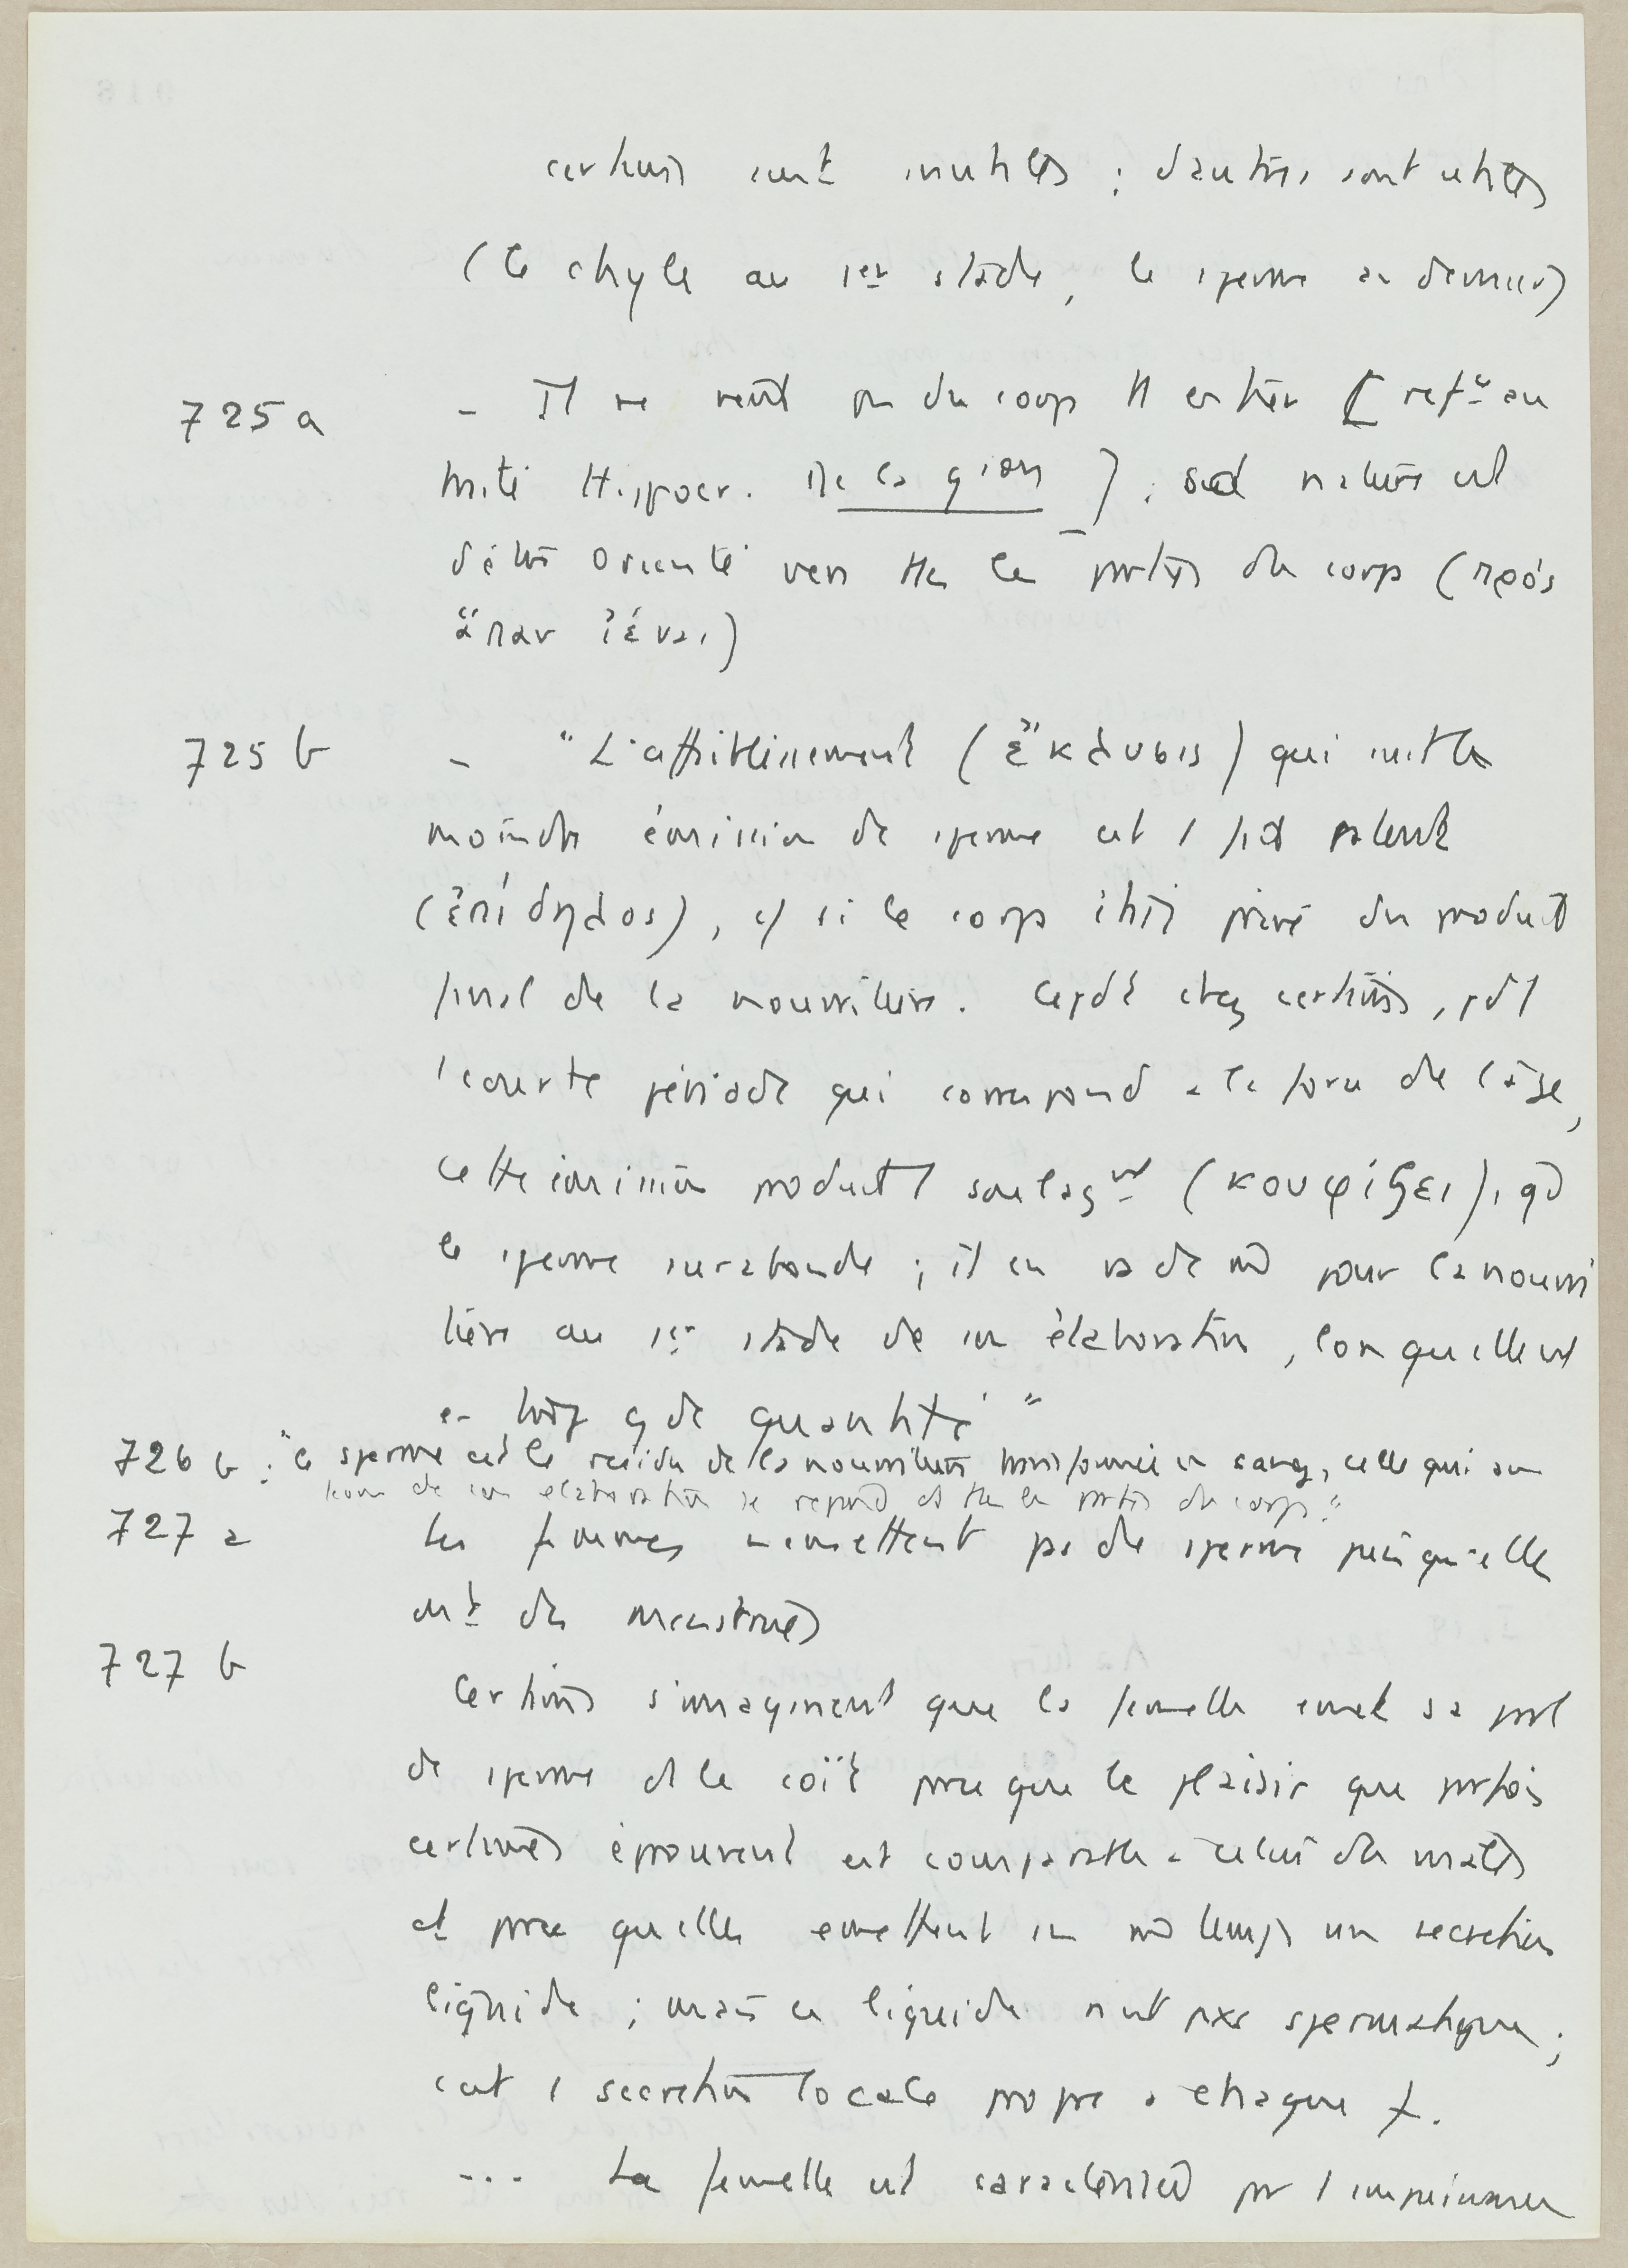 certains sont inutiles ; d'autres sont utiles
(le chyle au 1er stade, le sperme au dernier)
725 a - Il ne vient pas du corps tt entier [ refce au
traité Hippocr. De la gion ] ; sa nature est
d'être orienté vers ttes les parties du corps (πρὸς
ἅπαν ἰέναι)
725 b - "L'affaiblissement (ἔκλυσις) qui suit la
moindre émission de sperme est 1 fait patent
(ἐπίδηλος), c/ si le corps était privé du produit
final de la nourriture. Cepdt chez certains, pdt
1 courte période qui correspond à la force de l'âge,
cette émission produit 1 soulagnt (κουφίζει), qd
le sperme surabonde ; il en va de m̂ pour la nourri
ture au 1er stade de son élaboration, lorsqu'elle est
en trop gde quantité "
726 b : "le sperme est le résidu de la nourriture transformée en sang, celle qui au
cours de son élaboration se répand ds ttes les parties du corps."
727 a Les femmes n'émettent pas de sperme puisqu'elles
ont des menstrues
727 b
Certains s'imaginent que la femelle émet sa part
de sperme ds le coït parce que le plaisir que parfois
certaines éprouvent est comparable à celui des mâles
et parce qu'elles émettent en m̂ temps une sécrétion
liquide ; mais ce liquide n'est pas spermatique ;
c'est 1 sécrétion locale propre à chaque f.
... La femelle est caractérisée par 1 impuissance